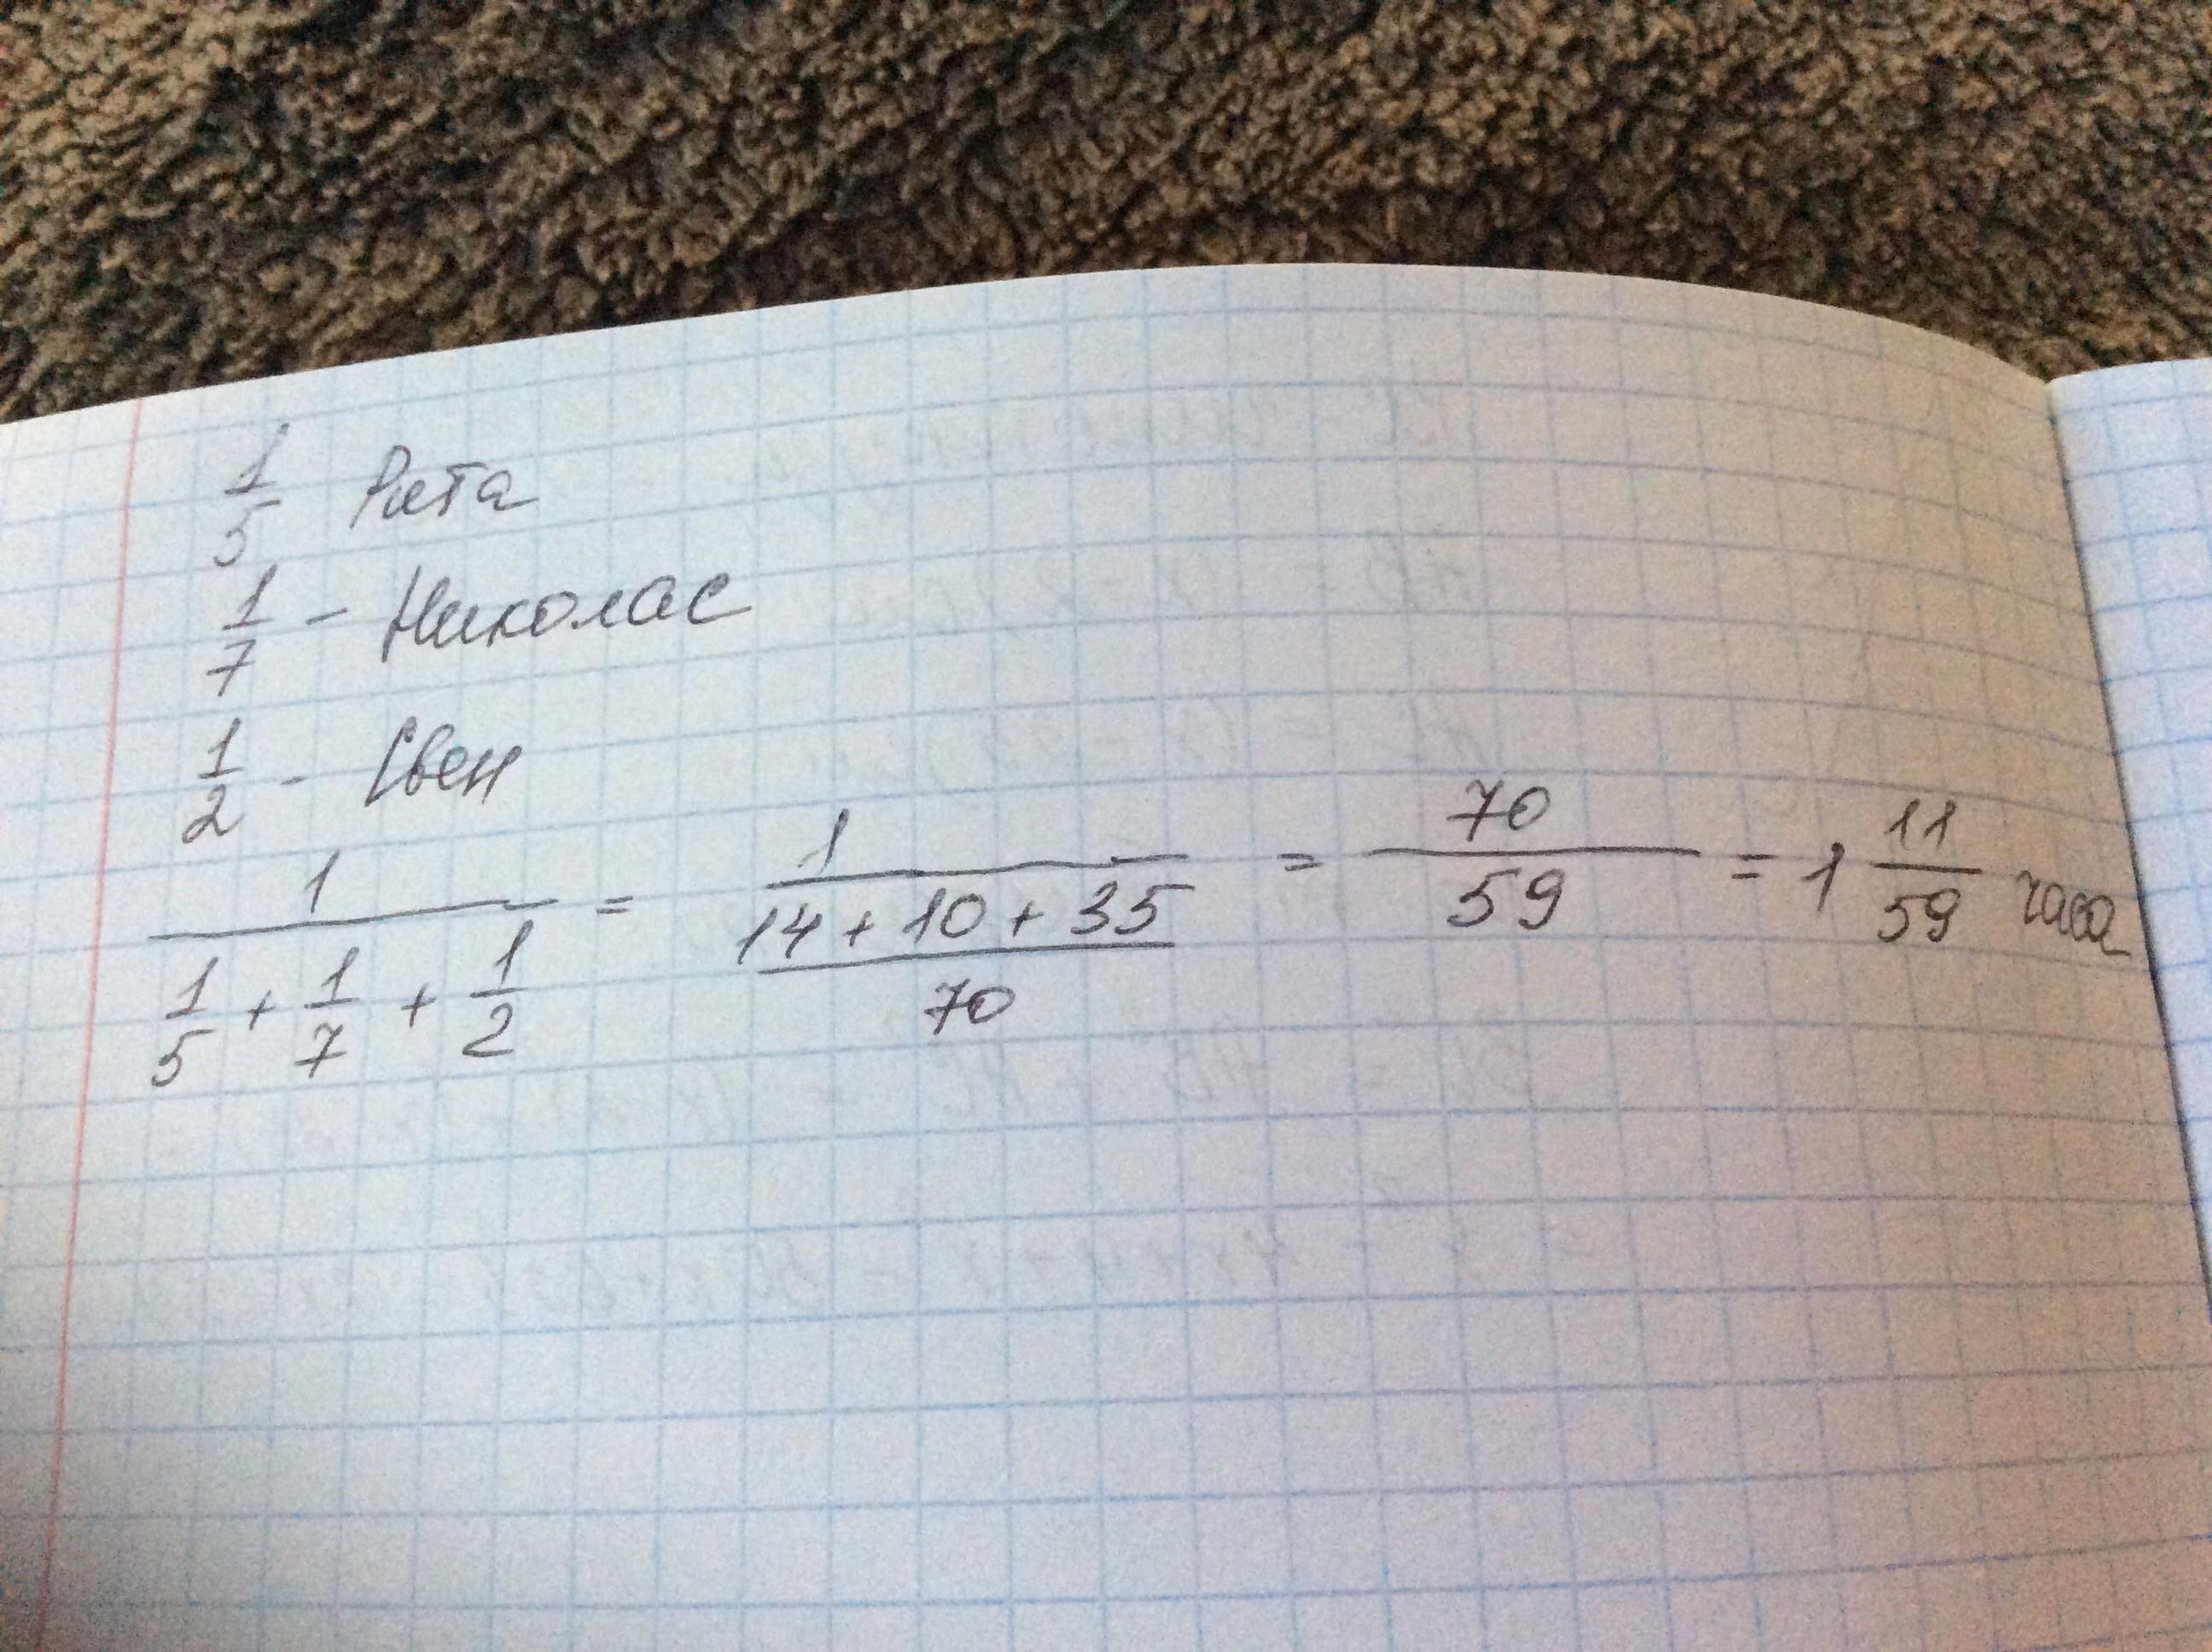 1/5 Рита
1/7 - Николас
1/2 - Свен
1/(1/5 + 1/7 + 1/2) = 1/((14 + 10 + 35)/70) = 70/59 = 1 11/59 часа